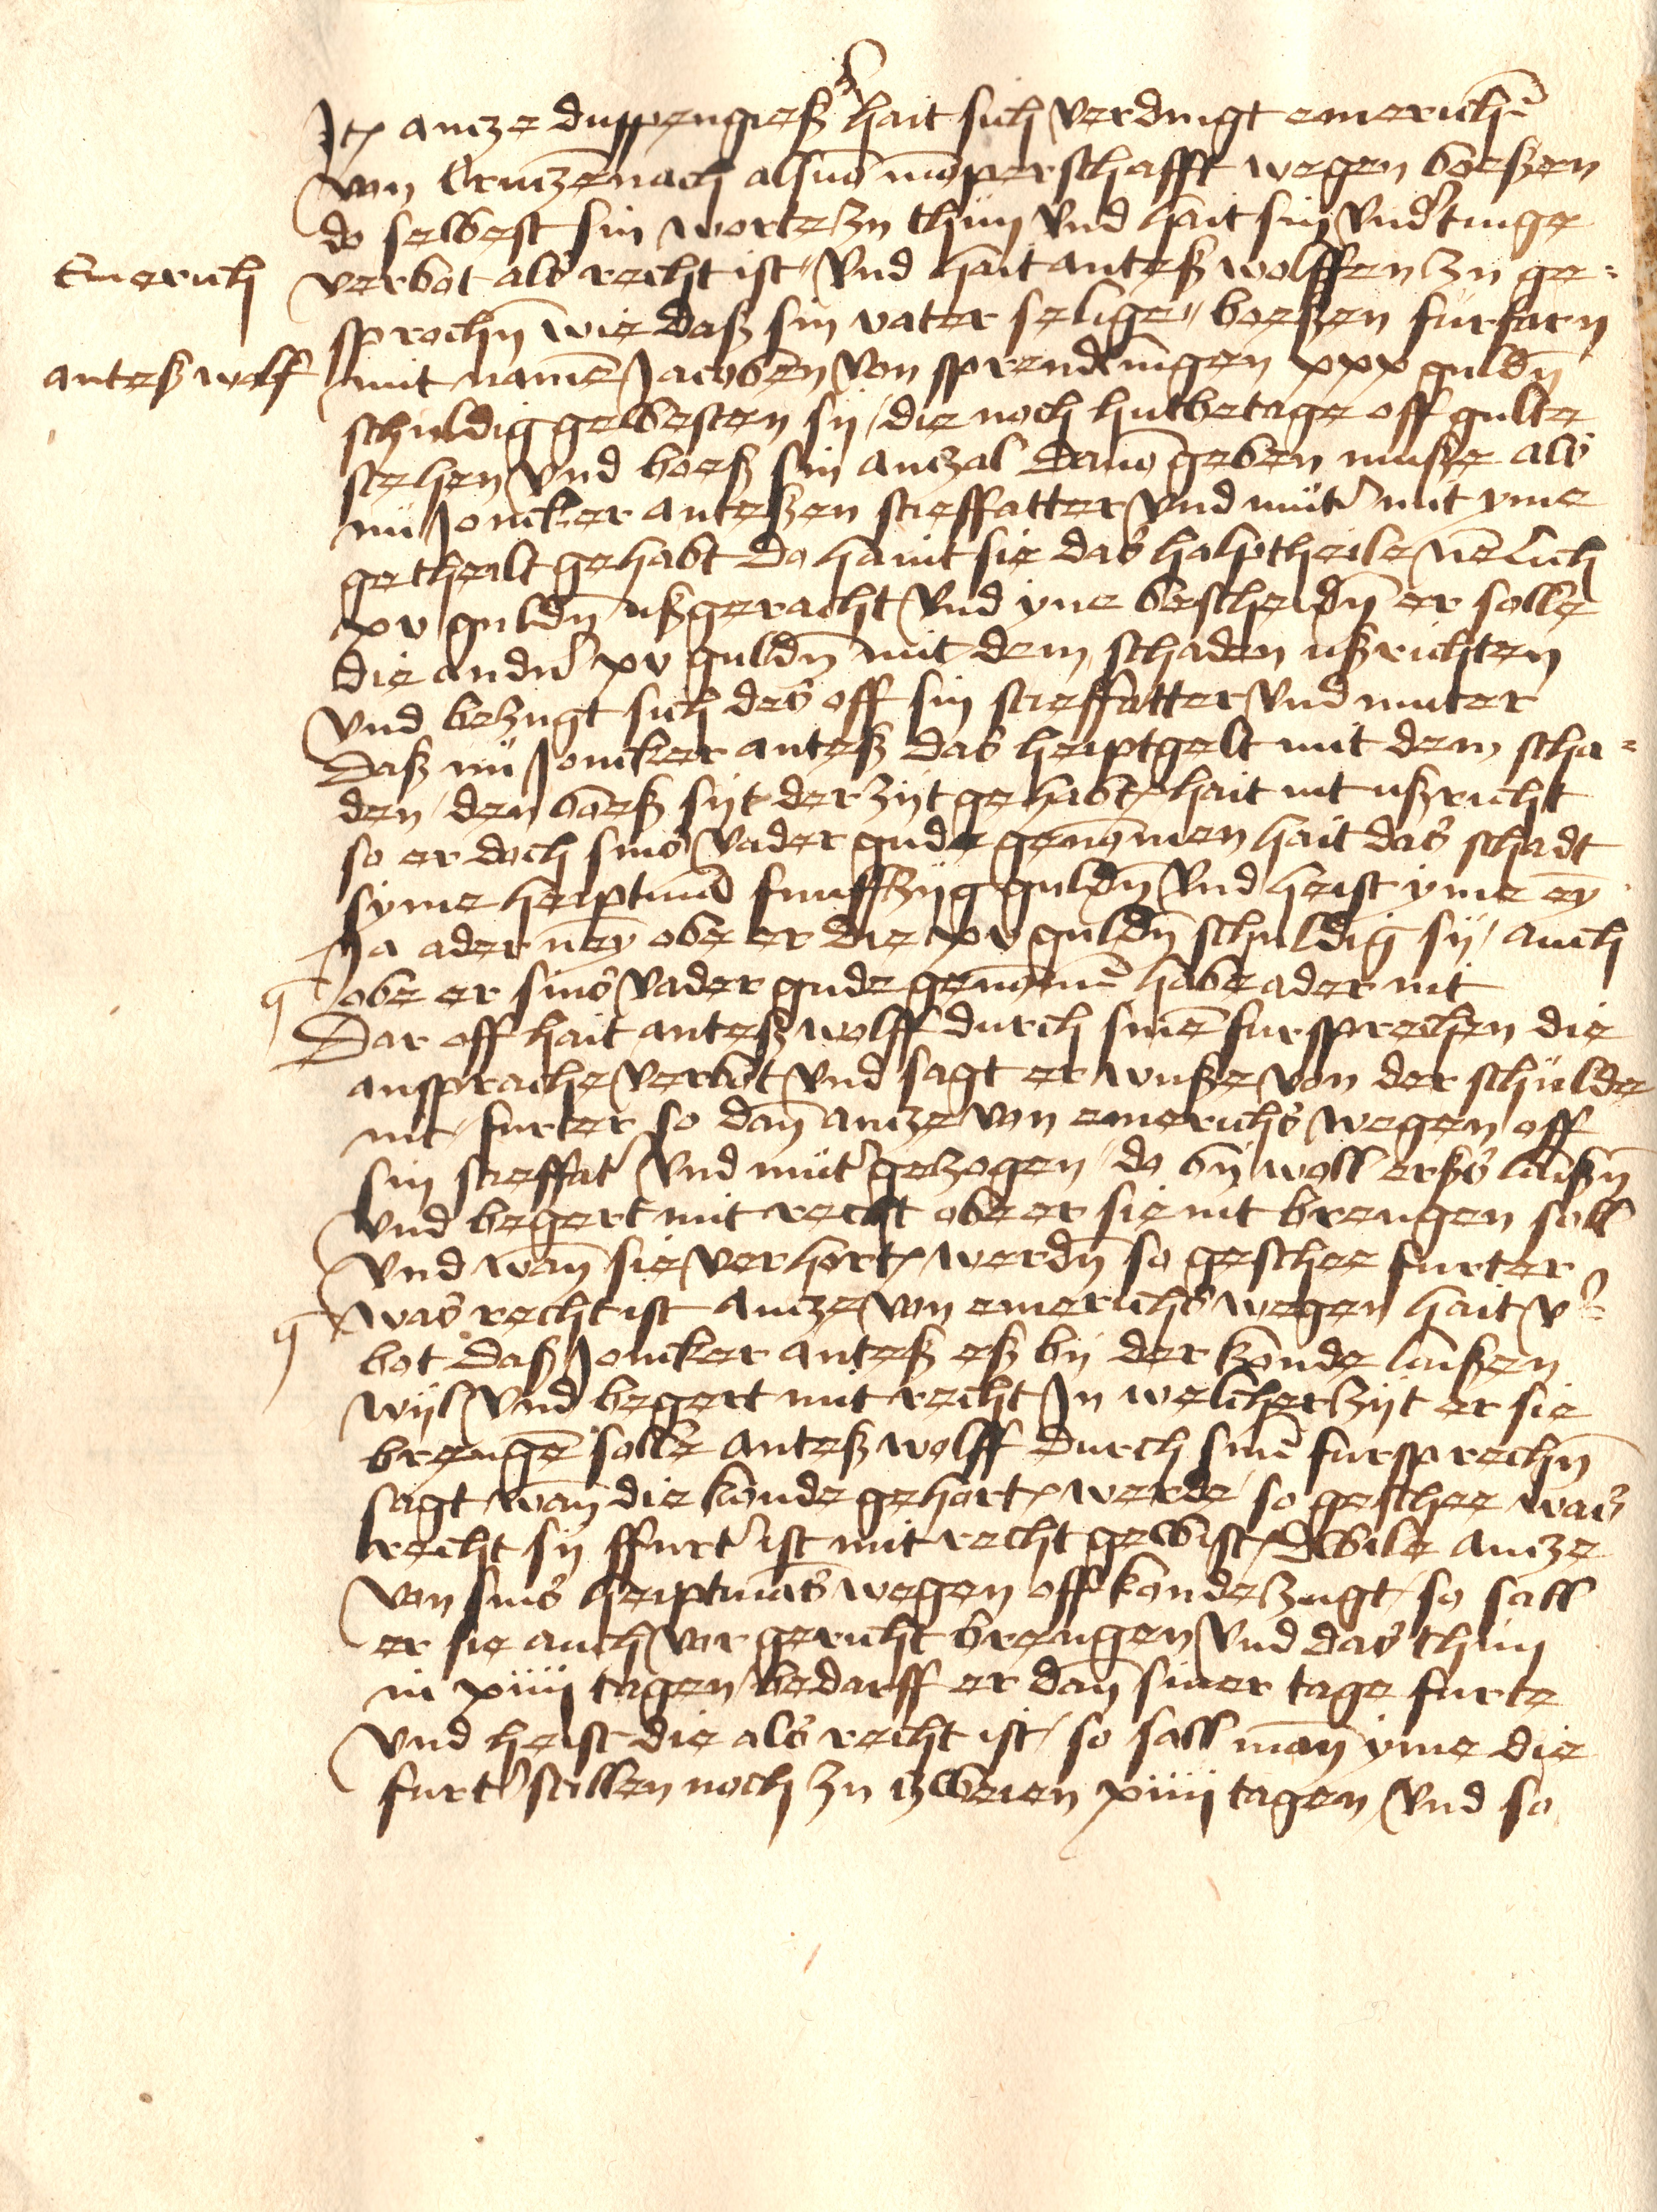 Jt(em) ancze duppengieß(er) hait sich verdingt emerich(en)
von Cruczenach als vo(n) mo(m)perschafft wegen boeßen
do selbest sin worte zu thun vnd hait sin vnd(er)tinge
Emerich verbot als recht ist / vnd hait anteß wolffen zu ge=
sproch(e)n wie daß sin vater selige / boeßen furfarn
anteß wolff mit name(n) Jacoben von sprendeli(n)gen xxx guld(e)n
schuldig gewesten sy / die noch hutbetage off gulte
stehen vnd boeß sin anczal davo(n) geben muße als
nu Joncker anteßen stieffatter vnd mut(er) mit yme
getheilt gehabt do haint sie das halptheile ne(m)lich
xv guld(e)n ußgeracht vnd yne bescheid(e)n er solle
die and(er)n xv guld(e)n mit dem schaden ußrichten
vnd bezugt sich des off sin stieffatter vnd muter
Daß nu Joncker anteß das heiptgelt mit dem scha=
den / den boeß syt der zyt gehabt hait nit ußricht
so er doch sins vader gude genomen hait das schadt
syme heiptma(n) funffzig guld(e)n vnd heist yme ey(n)
Ja ader ney(n) obe er die xv guld(e)n schuldig sy / auch
obe er sins vader gude genom(m)e(n) habe ader nit
Dar off hait anteß wolff durch sine(n) fursprechen die
ansprache verbot vnd sagt er wuße von der schulde
nit / furter so dan(n) ancze von emerichs wegen off
sin stieffat(er) vnd mut(er) gezogen / do by woll erß laiß(e)n
vnd begert mit recht obe er sie nit brengen soll
vnd wan(n) sie verhort werd(e)n so geschee furter
was recht ist Ancze von emerichs wegen hait v(er)=
bot daß Joncker anteß eß by der konde laißen
wyl vnd begert mit recht Jn welicher zyt er sie
brenge(n) solle anteß wolff durch sine(n) fursprech(e)n
sagt wan(n) die konde gehort werde / so geschee was
recht sy ffurt(er) ist mit recht gewist / Dwile ancze
von sins heiptma(n)s wegen off konde zugt / so sall
er sie auch vor gericht brengen vnd das thun
in xiiij tagen / bedarff er dan(n) siner tage furte
vnd heist die als recht ist / so sall man(n) yme die
furt(er) stellen noch zu zweien xiiij tagen / vnd so